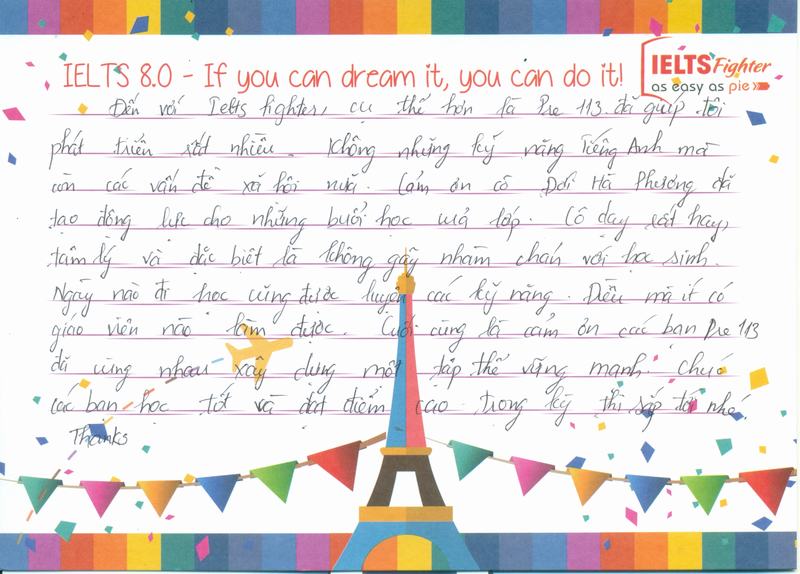 IELTS 8.0 - If you can dream it, you can do it!
IELTS Fighter
as easy as pie
Đến với Ielts fighter, cụ thể hơn là Pre 113 đã giúp tôi
phát triển rất nhiều. Không những kỹ năng Tiếng Anh mà
còn các vấn đề xã hội nữa. Cảm ơn cô Đới Hà Phương đã
tạo động lực cho những buổi học của lớp. Cô dạy rất hay,
tâm lý và đặc biệt là không gây nhàm chán với học sinh.
Ngày nào đi học cũng được luyện các kỹ năng. Điều mà ít có
giáo viên nào làm được. Cuối cùng là cảm ơn các bạn Pre 113
đã cùng nhau xây dựng một tập thể vững mạnh. Chúc
các bạn học tốt và đạt điểm cao trong kỳ thi sắp tới nhé.
Thanks